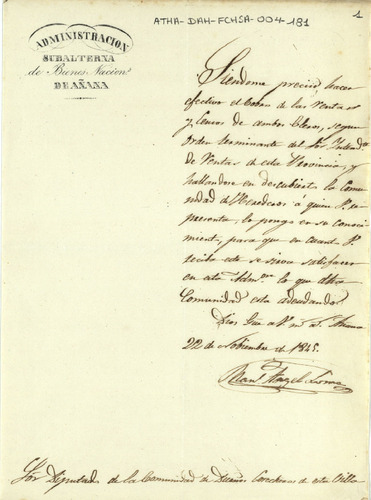 ATHA-DAH-FCHSA-004-181
1
ADMINISTRACION
SUBALTERNA
de Bienes Nacion.s
DE AÑANA
Siendome preciso hacer
efectivo el cobro de las rentas
y Censos de ambos Cleros, segun
orden terminante del Sor Intend.te
de Rentas de esta Provincia, y
hallandose en descubierto la Comu
nidad de Herederos á quien V. re
presenta, lo pongo en su conoci
miento, para que en cuanto V.
reciba este se sirva satisfacer
en esta Adm.on lo que dha
Comunidad esta adeudando.
Dios gue a V. m.s a.s Añana
22 de Noviembre de 1845.
Angel
Sor Diputado de la Comunidad de Dueños de esta Villa